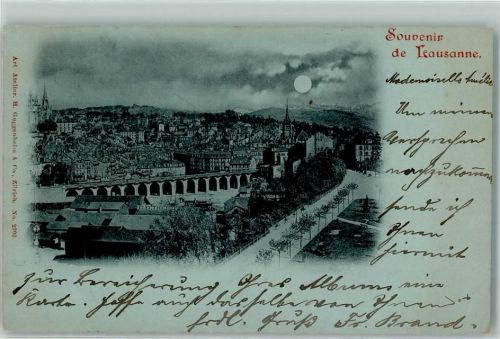 Souvenir
de Lausanne.
Art. Atelier. H. Guggenheim & Co., Zürich. No. 2703
Mademoiselle Amélie
Um meinem
Versprechen
nachzukommen
sende ich
Ihnen
hiermit
zur Bereicherung Ihres Albums eine
Karte. Hoffe auch dasselbe von Ihnen
frdl. Gruß Fr. Brand.